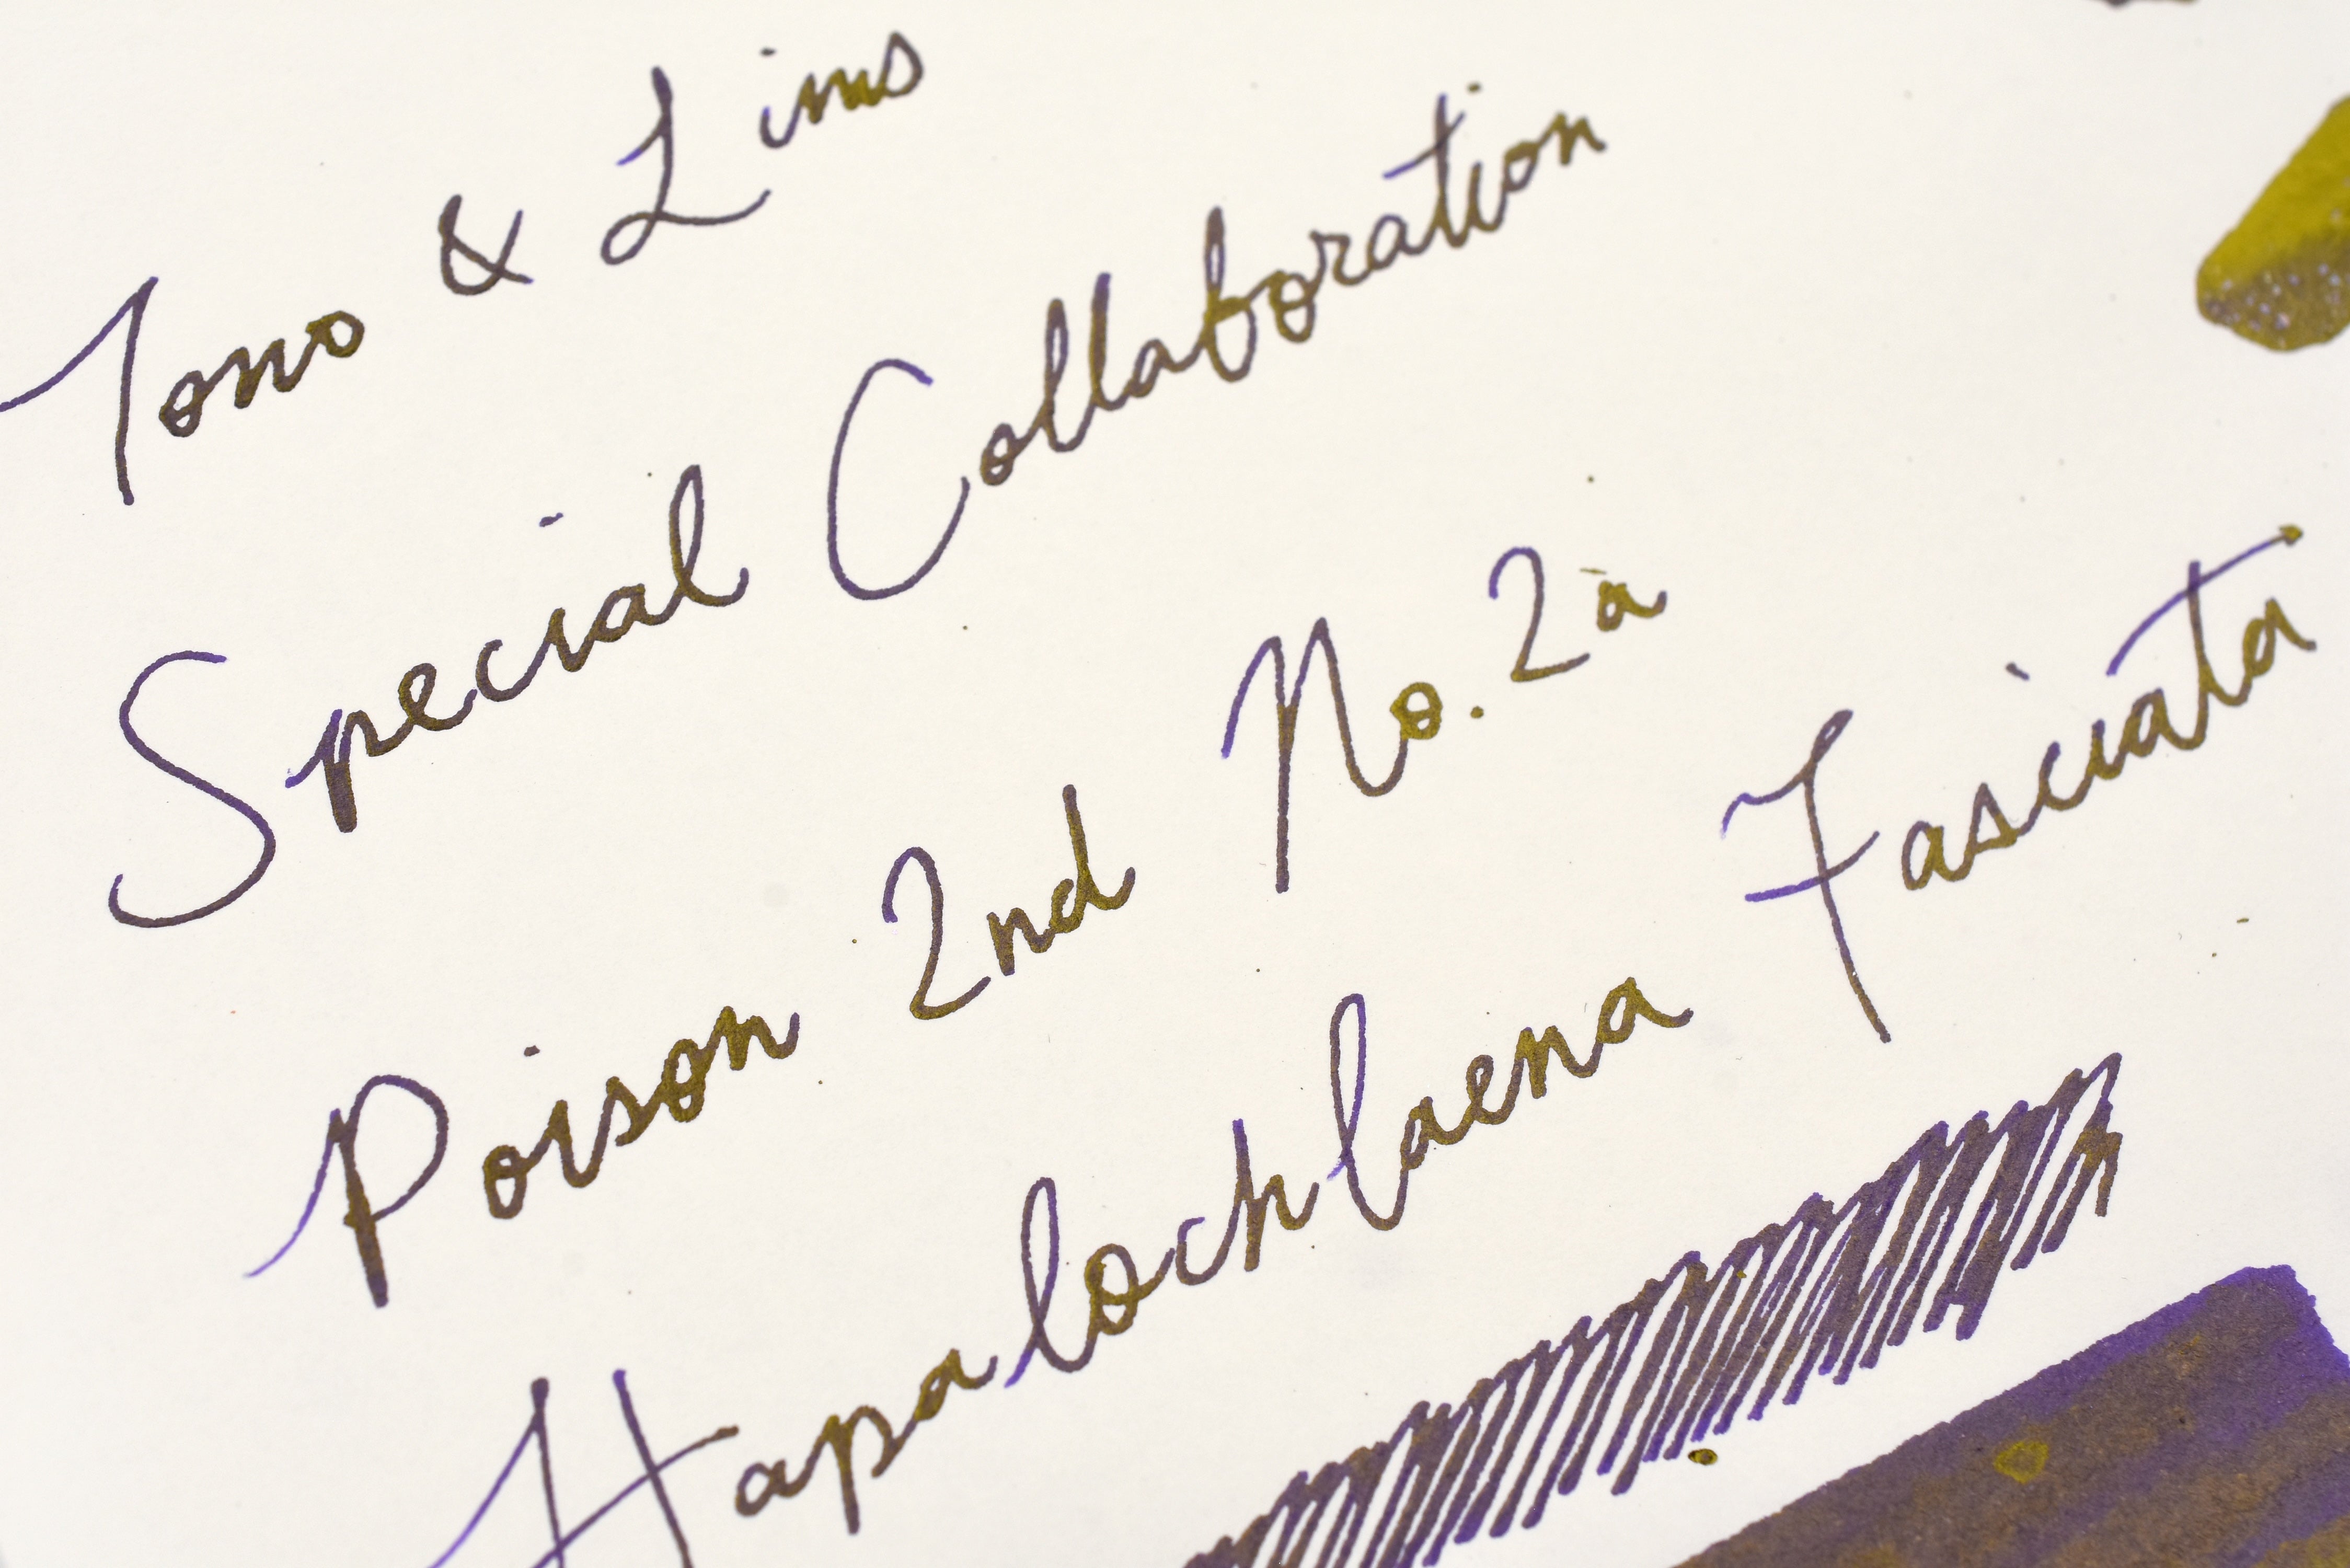 Tono & Lims
Special Collaboration
Poison 2nd No. 2a
Hapalochlaena Fasciata